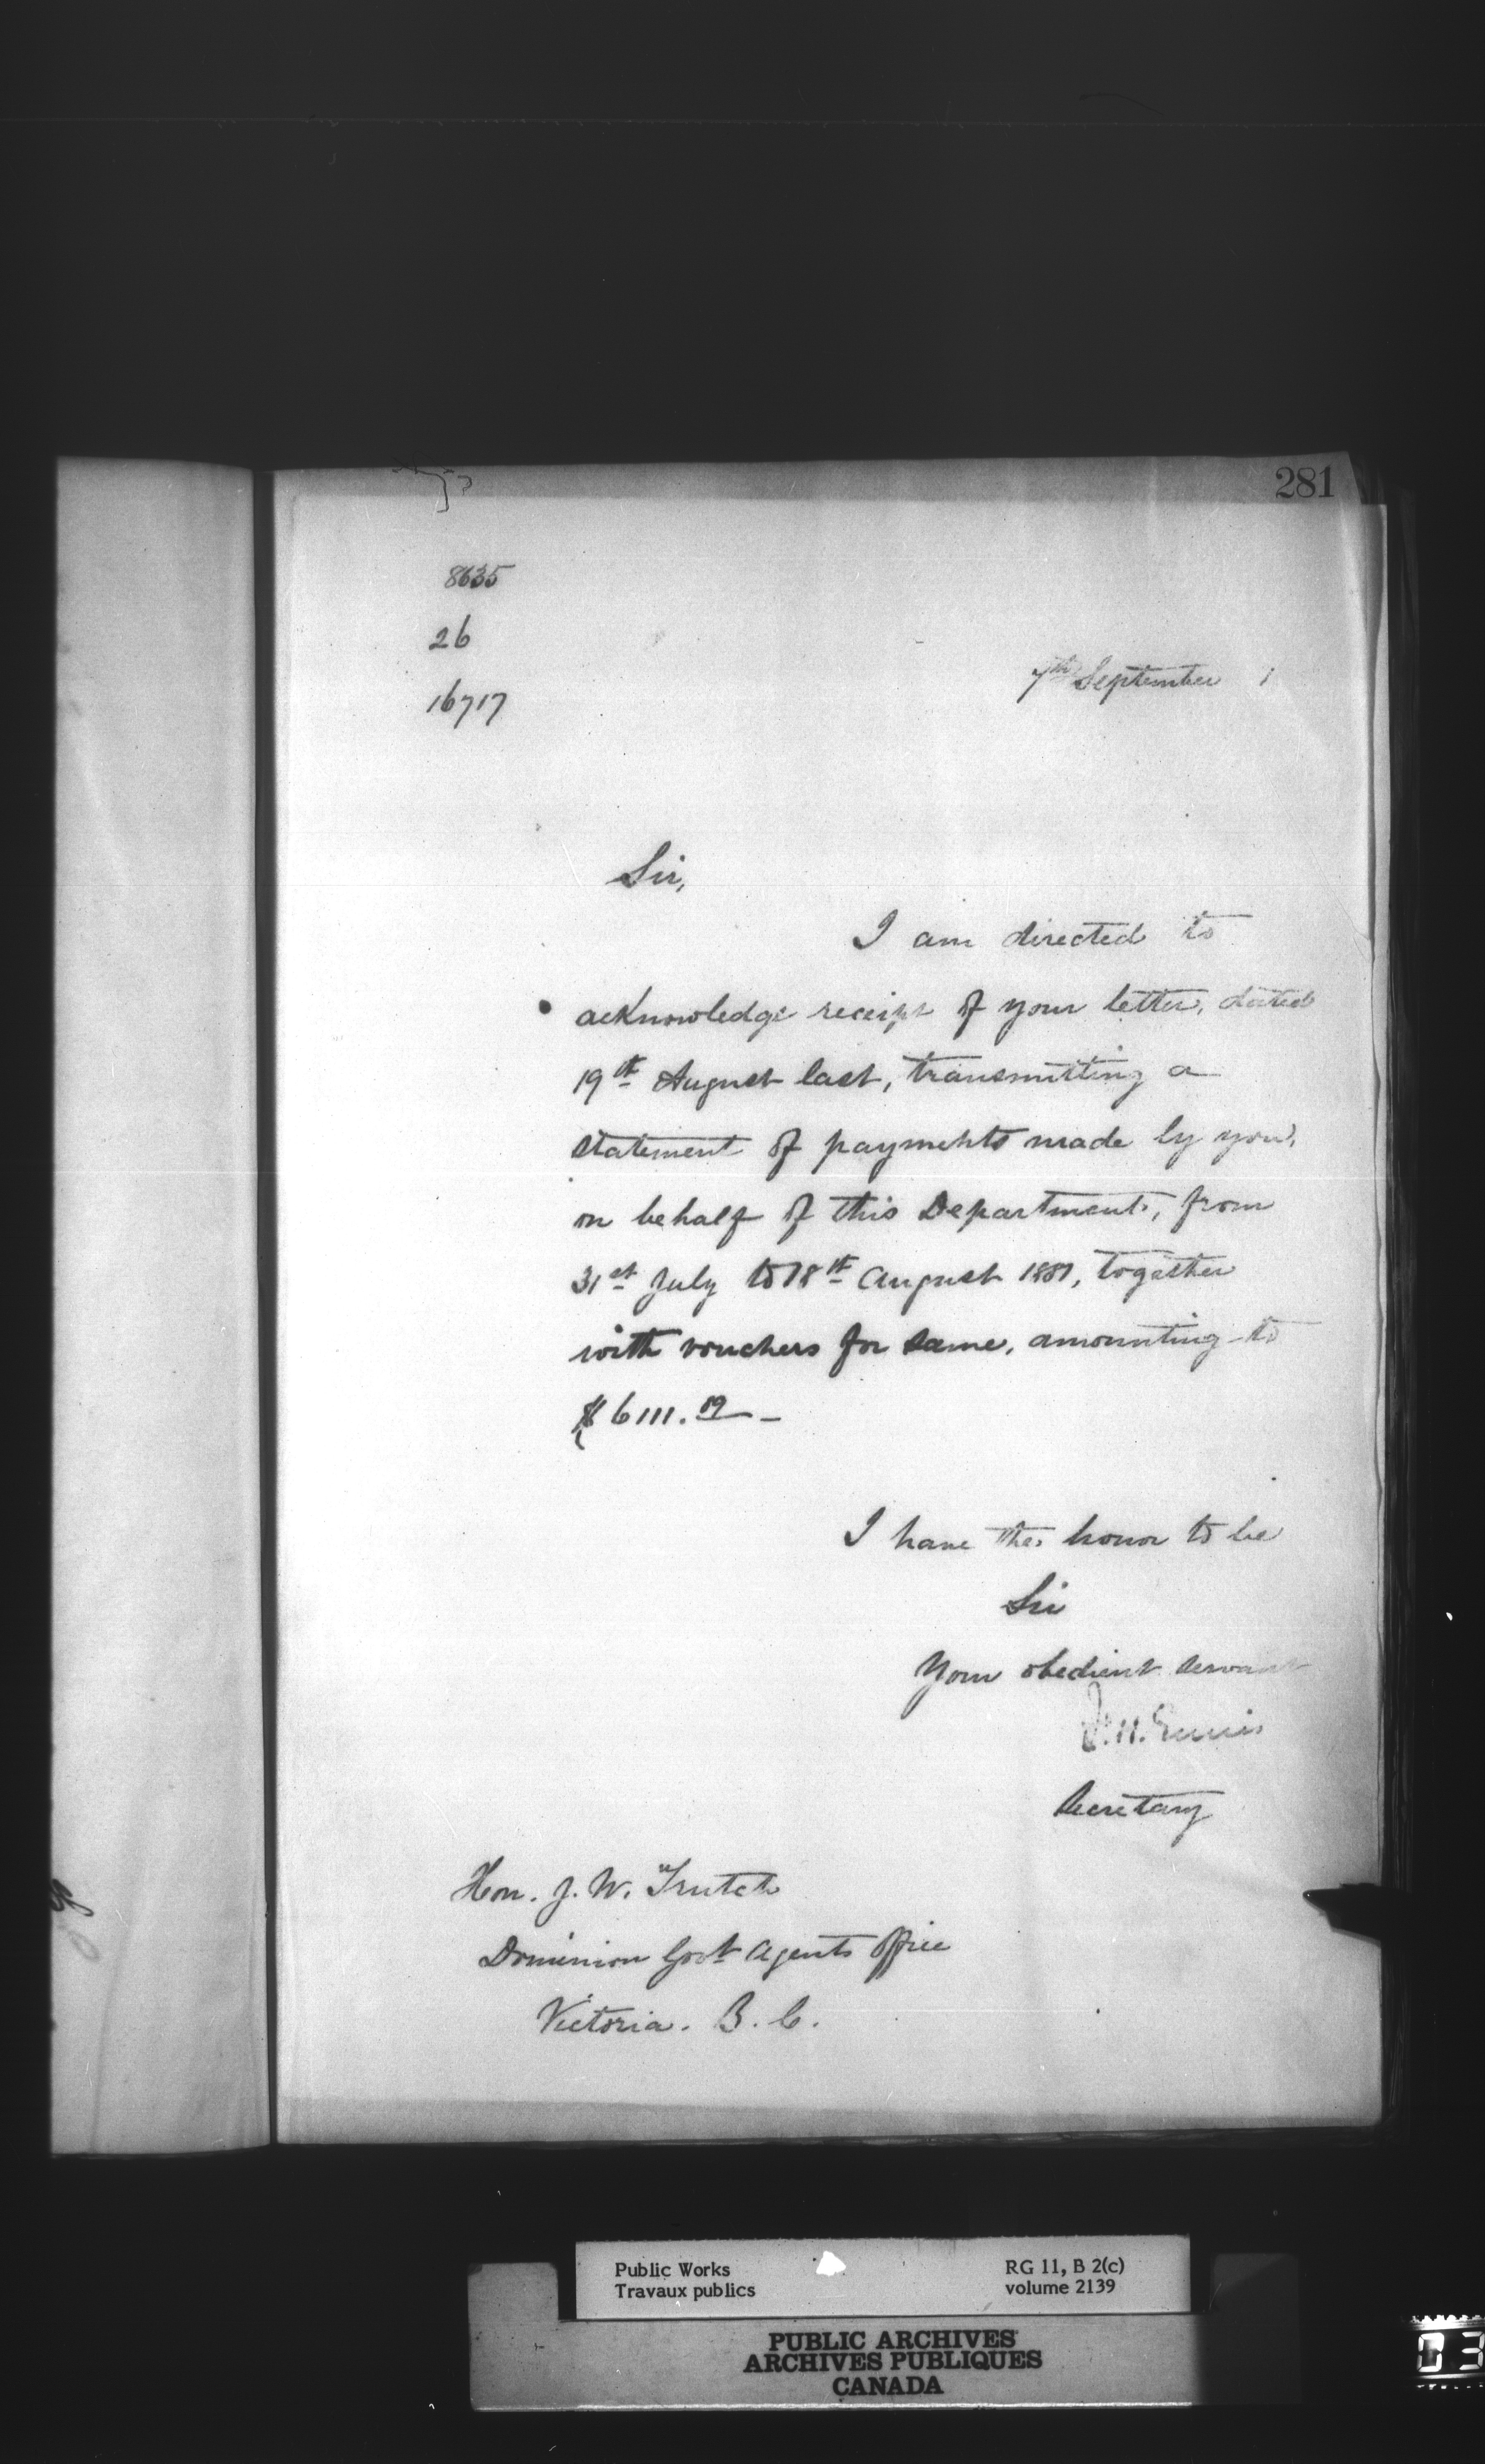 281
8635
26
16717
7th September 1
Sir,
I am directed to
acknowledge receipt of your letter, dated
19th August last, transmitting a
statement of payments made by you,
on behalf of this Department, from
31st July to 18th August 1881, together
with vouchers for same, amounting to
$6111.19 -
I have the honor to be
Sir
Your obedient servant
F. H. Ennis
Secretary
Hon. J. W. Trutch
Dominion Govt Agents Office
Victoria. B. C.
Public Works
Travaux publics
RG 11, B 2(c)
volume 2139
PUBLIC ARCHIVES
ARCHIVES PUBLIQUES
CANADA
03